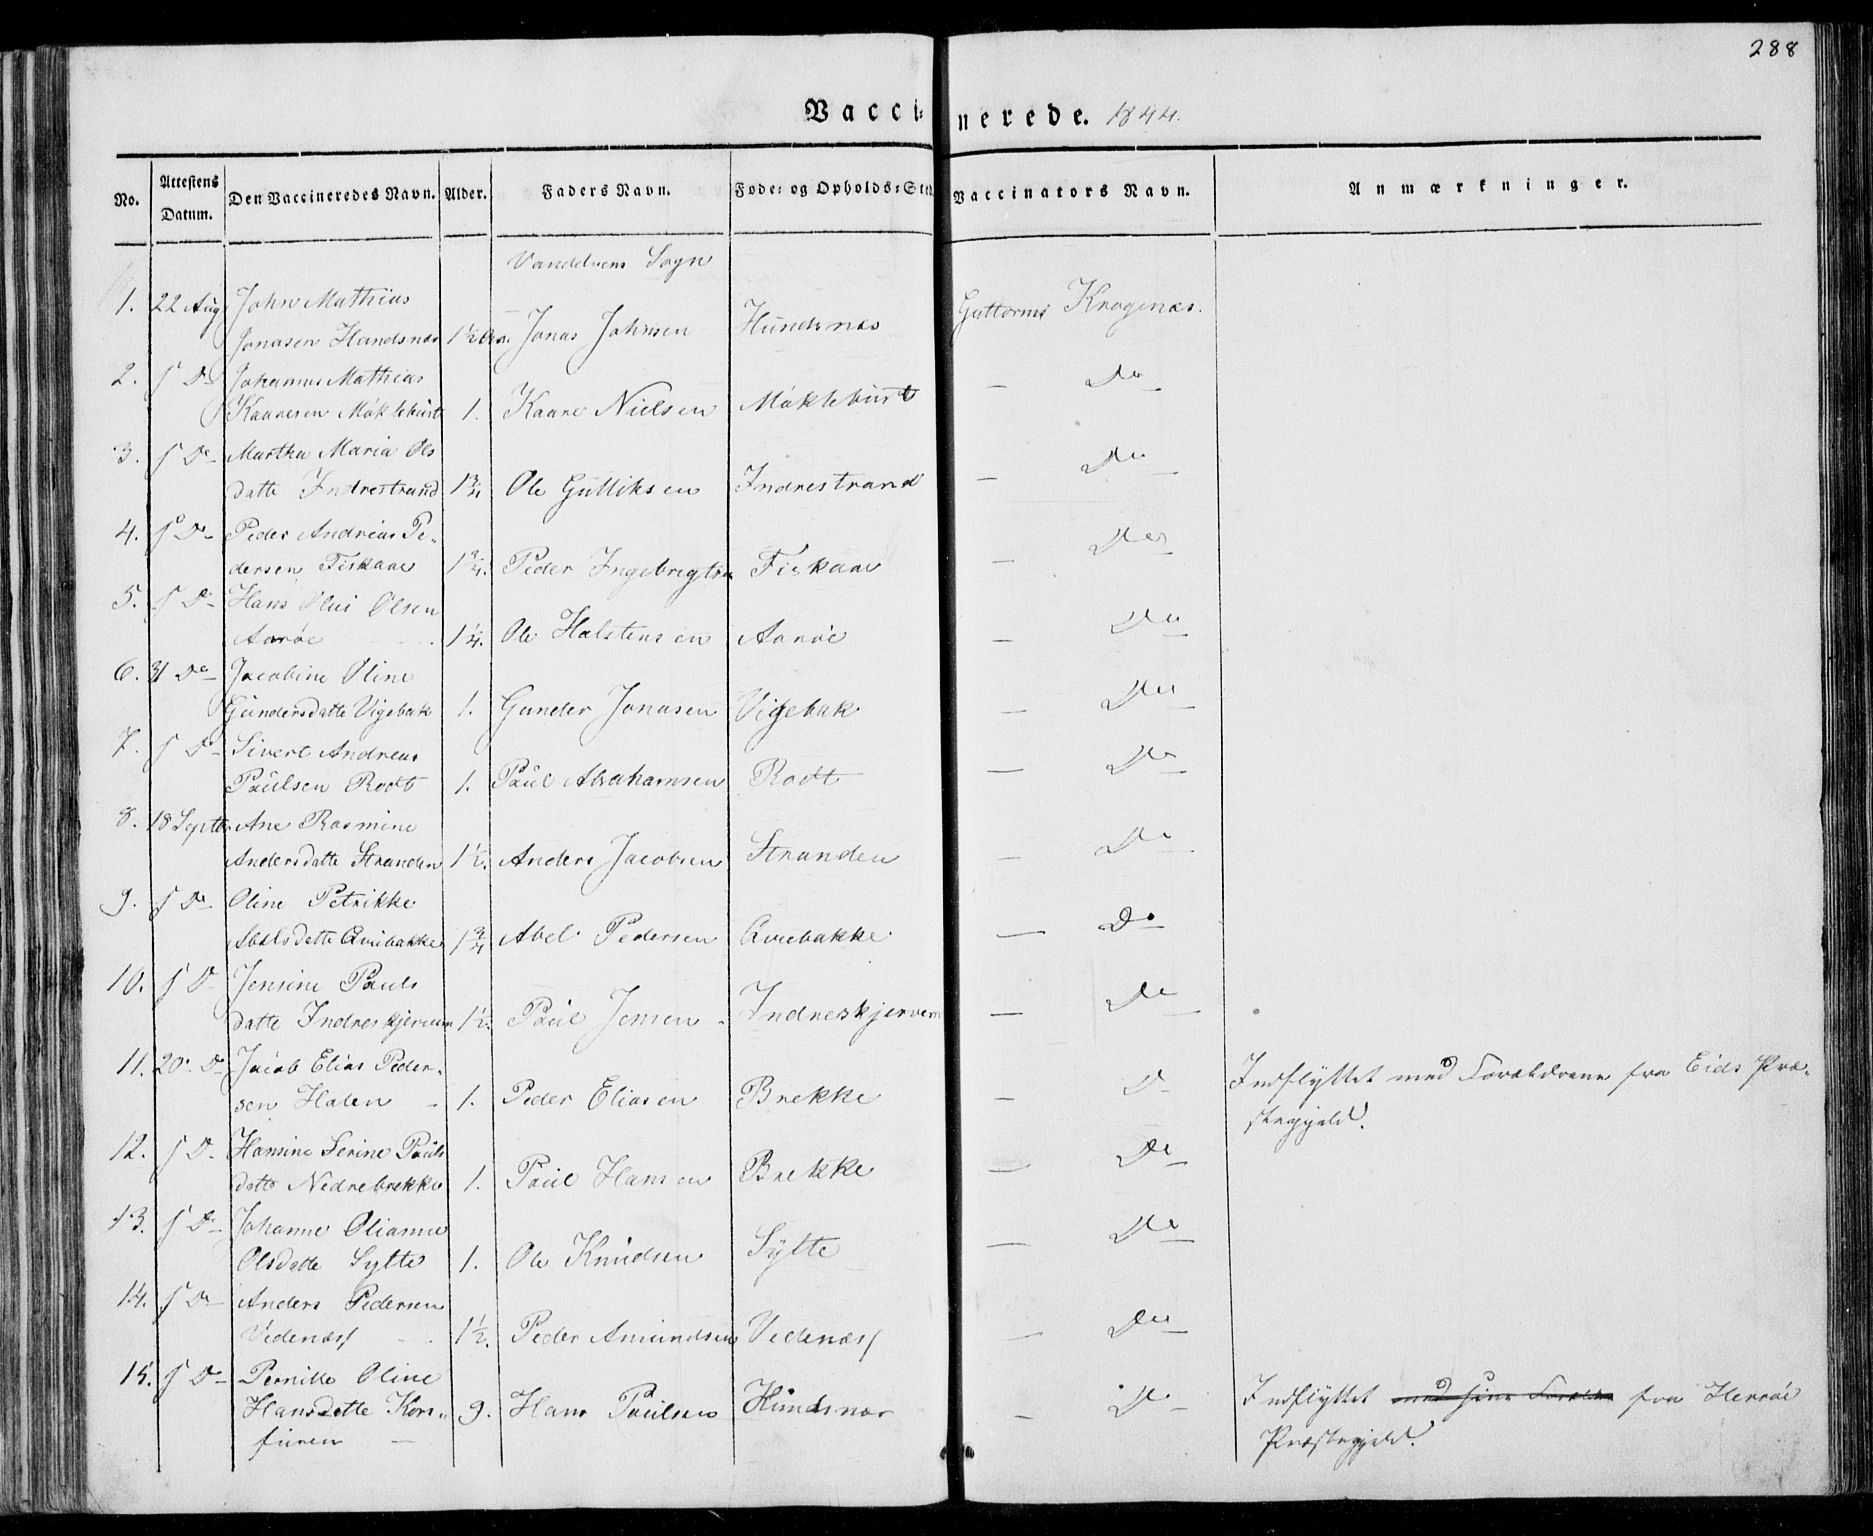 288
Vaccinerede. 1844.
No. Attestens Datum. Den Vaccineredes Navn. Alder. Faders Navn. Føde- og Opholds-Sted Vaccinators Navn. Anmærkninger.
Vanelvens Sogn
1. 22 Aug John Mathias
Jonasen Hundsnæs 1½ Jonas Johnsen Hundsnæs Guttorm Krogenæs.
2. D Johannes Mathias
Kaaresen Mökleburst 1. Kaare Nielsen Mökleburst — Do
3. D Martha Maria Ols
datte Indrestrand 1¾ Ole Gulliksen Indrestrand — Do
4. D Peder Andreas Pe-
dersen Fiskaae 1¾. Peder Ingebrigtsn Fiskaae — Do
5. D Hans Olai Olsen
Aarøe 1¼. Ole Halstensen Aarøe — Do
6. 31 Do Jacobine Oline
Gundersdatte Vigebak 1. Gunder Jonasen Vigebak — Do
7. D Sivert Andreas
Paulsen Rodt 1. Paul Abrahamsen Rodt — Do
8. 18 Septbr Ane Rasmine
Andersdatte Stranden 1½. Anders Jacobsen Stranden — Do
9. Do Oline Petrikke
Abelsdatte Qviebakke 1¾ Abel Pedersen Qviebakke — Do
10. D Jensine Pauls
datte Indreskjerven 1½. Paul Jensen Indreskjerven — Do
11. 20. Do Jacob Elias Peder-
sen Halen 1. Peder Eliasen Brekke — D Indflyttet med Forældrene fra Eids Præ-
stegjeld.
12. D Hansine Serine Pauls
datte Nedrebrekke 1. Paul Hansen Brekke — Do
13. Do Johanne Olianne
Olsdatte Sylte 1. Ole Knudsen Sylte — Do
14. Do Anders Pedersen
Vedenæs 1½. Peder Amundsen Vedenæs — Do
15. Do Pernille Oline
Hansdatte Kors- 9. Hans Paulsen Hundsnæs — Do Indflyttet med sine Forældre fra Herrøe
furen — Præstegjeld.